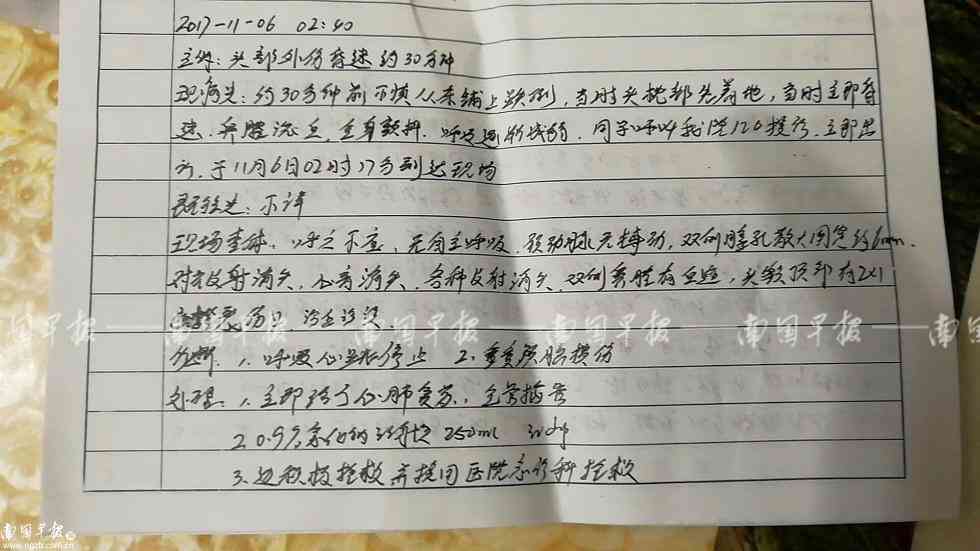 2017-11-06 02:40
主诉:头部外伤昏迷约30分钟
现病史:约30分钟前不慎从床铺上跌倒,当时头枕部先着地,当时立即昏
迷,鼻腔流血,全身颤抖,呼吸逐渐减弱,同学呼叫我院120接诊,立即出
诊,于11月6日02时17分到达现场
既往史:不详
现场查体:呼之不应,无自主呼吸,颈动脉无搏动,双侧瞳孔散大固定约6mm,
对光反射消失,心音消失,各种反射消失,双侧鼻腔有血迹,头颅顶部有2×1
伤口
南国早报 南国早报 南国早报
诊断:1.呼吸心跳停止 2.重度颅脑损伤
处理:1.立即给予心肺复苏,
2.0.9%氯化钠注射液 250ml ivdrip
3.边积极抢救并接回医院急诊科抢救
南国早报网
www.ngzb.com.cn